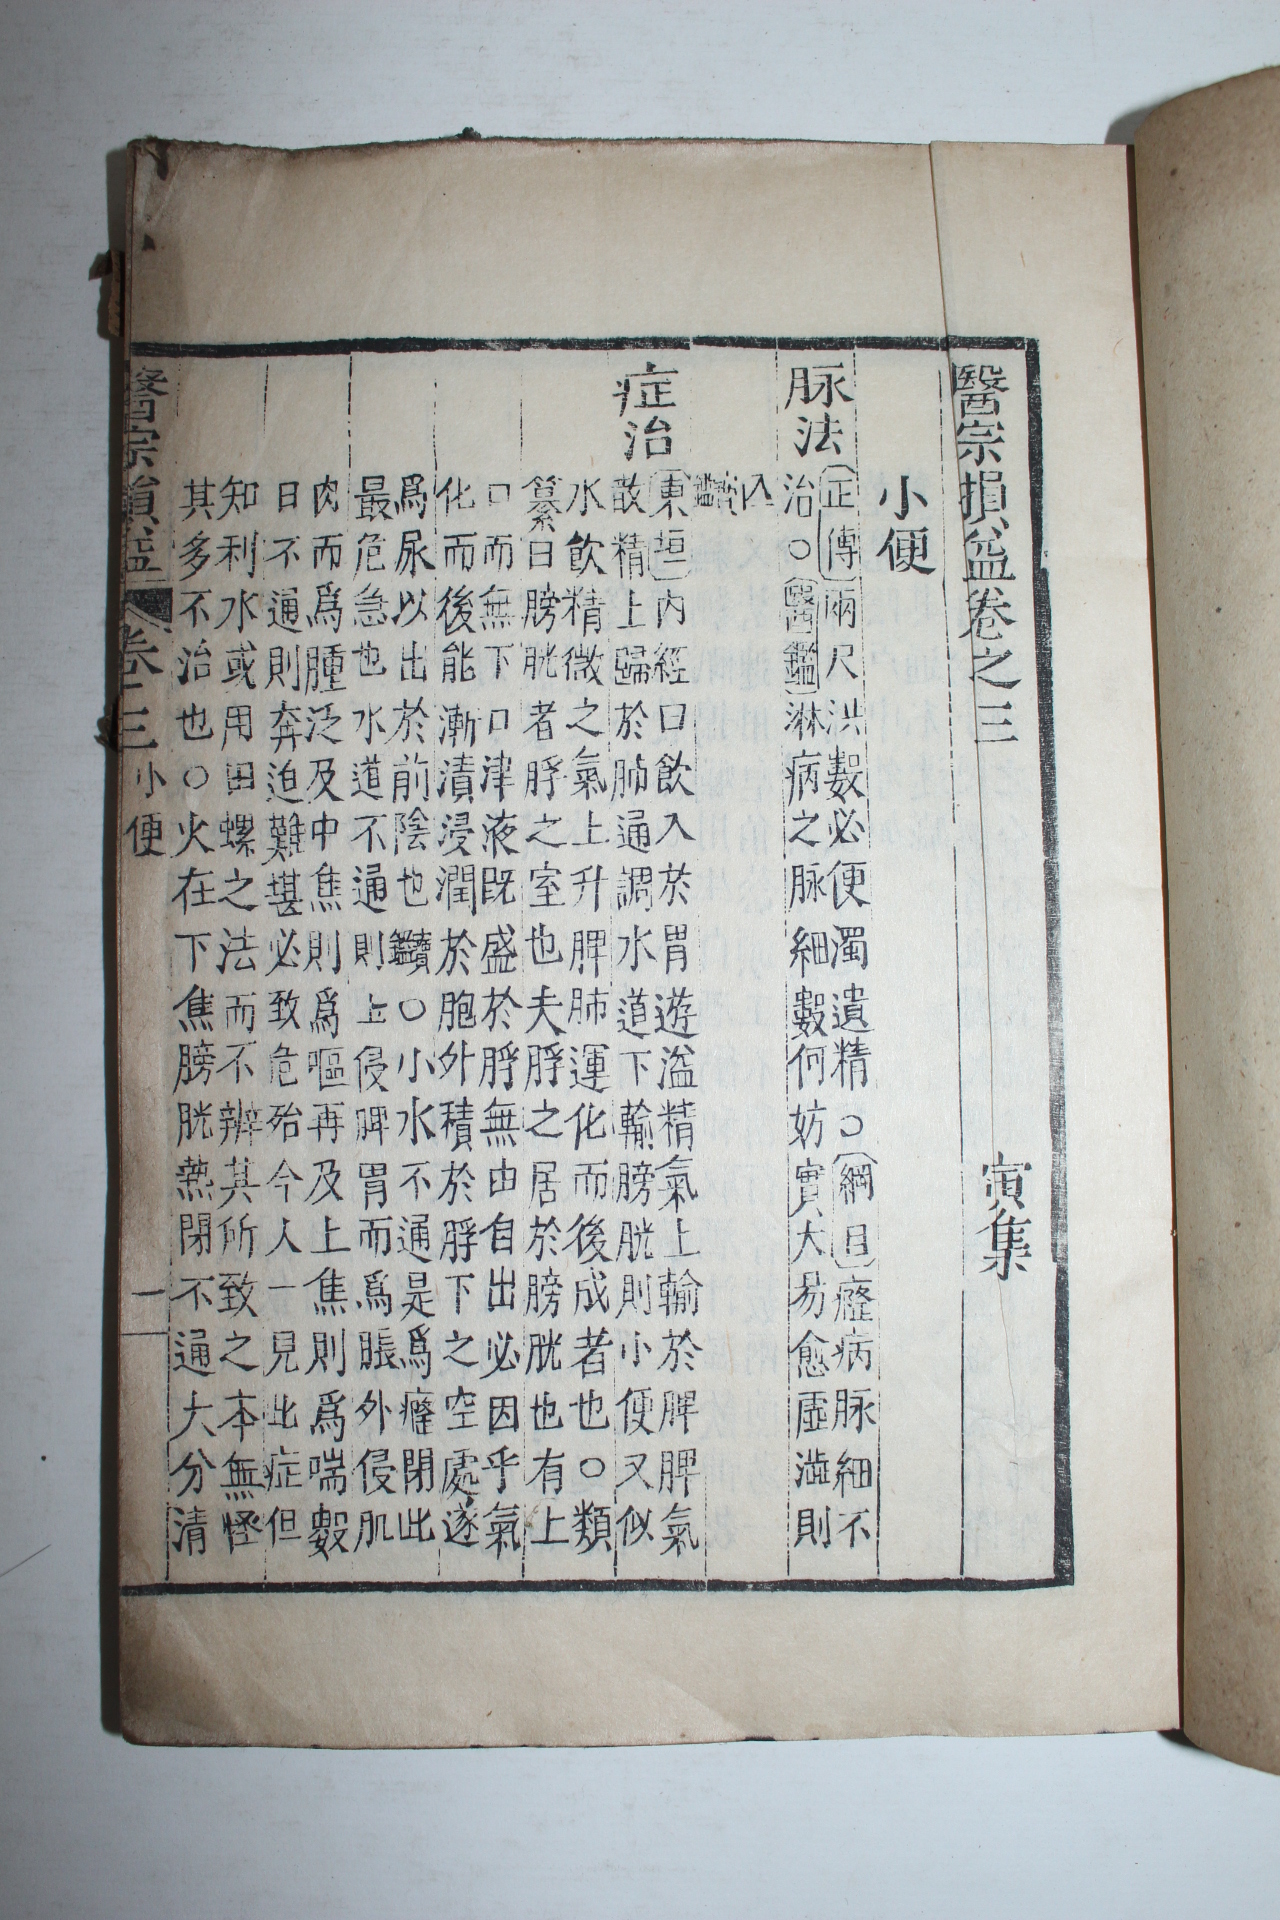 醫宗損益卷之三 寅集
小便
脉法 正傳兩尺洪數必便濁遺精○綱目癃病脉細不
治○醫鑑淋病之脉細數何妨實大易愈虛澁則
入
症治 東垣內經口飮入於胃遊溢精氣上輸於脾脾氣
散精上歸於肺通調水道下輸膀胱則小便又似
水飮精微之氣上升脾肺運化而後成者也○類
纂曰膀胱者脬之室也夫脬之居於膀胱也有上
口而無下口津液旣盛於脬無由自出必因乎氣
化而後能漸漬浸潤於胞外積於脬下之空處遂
爲尿以出於前陰也讚鑑○小水不通是爲癃閉此
最危急也水道不通則上侵脾胃而爲脹外侵肌
肉而爲腫泛及中焦則爲嘔再及上焦則爲喘數
日不通則奔迫難堪必致危殆今人一見此症但
知利水或用田螺之法而不辨其所致之本無怪
其多不治也○火在下焦膀胱熱閉不通大分清
醫宗損益 卷三 小便 一